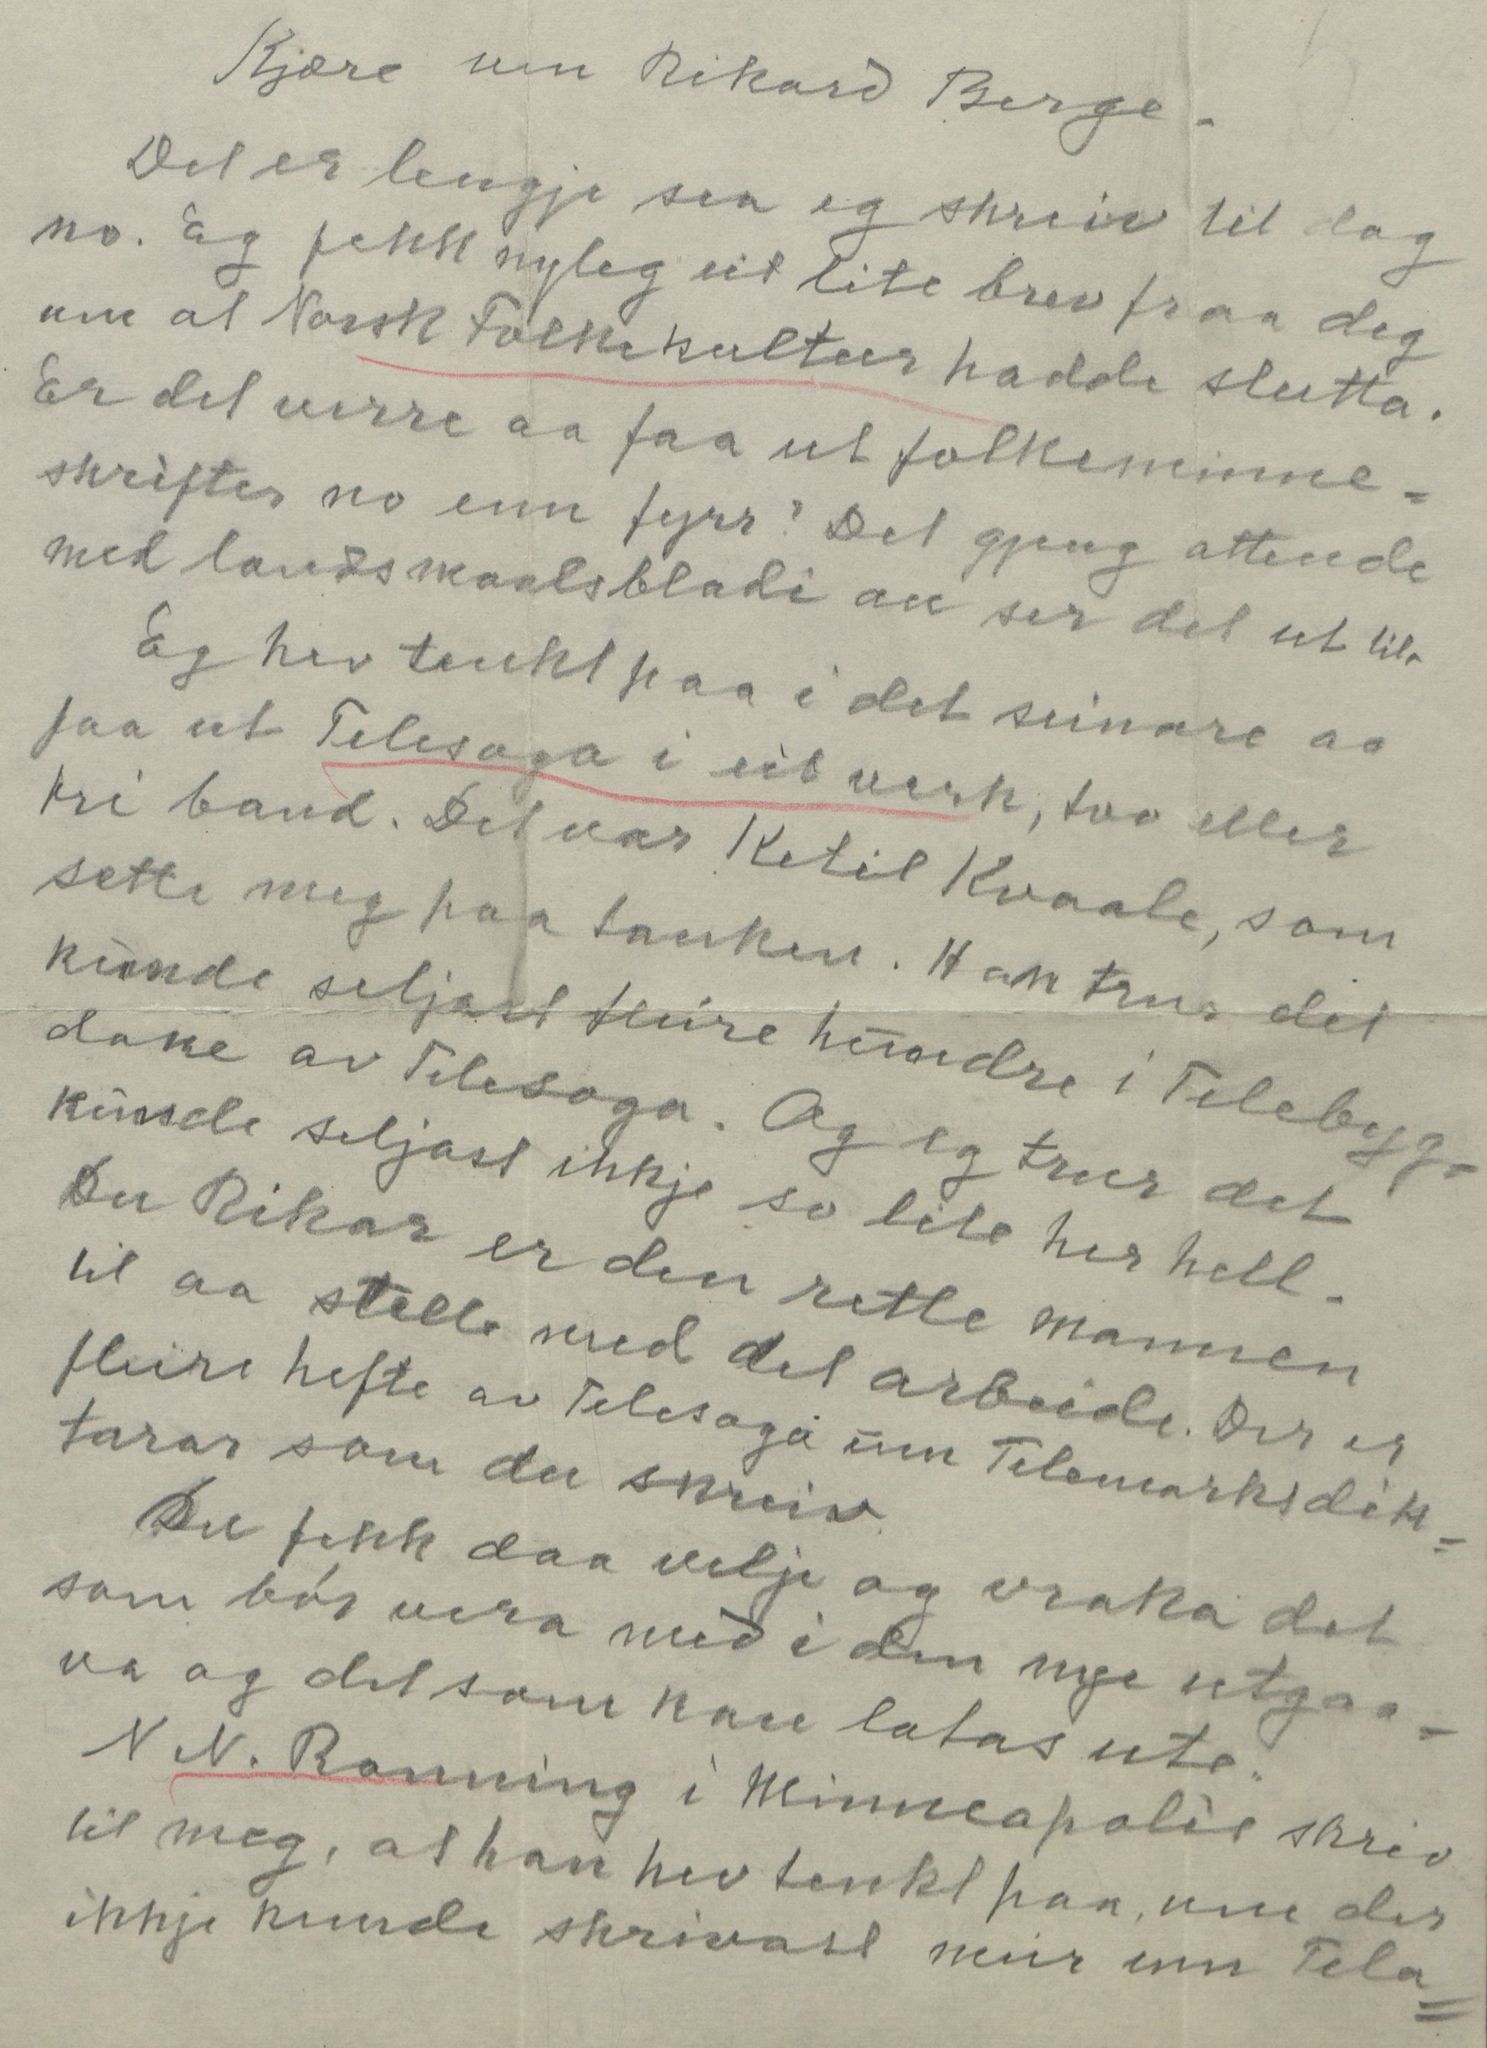 Kjære ven Rikard Berge.
Det er lengje sea eg skreiv til dog
no. Eg fekk nyleg eit lite brev fraa deg
um at Norsk Folkekultur hadde slutta.
Er det verre aa faa ut folkeminne-
skrifter no enn fyrr? Det gjeng attende
med landsmaalsbladi au ser det ut til.
Eg hev tenkt paa i det seinare aa
faa ut Telesoga i eit verk, tvo eller
tri band. Det var Ketil Kvaale, som
sette meg paa tanken. Han trur det
kunde seljast fleire hundre i Telebyg-
dane av Telesoga. Og eg trur det
kunde seljast ikkje so lite her hell.
Du Rikar er den rette mannen
til aa stelle med det arbeide. Der er
fleire hefte av Telesoga um Telemarksdik-
tarar som du skreiv.
Du fekk daa velje og vraka det
som bør vera med i den nye utgaa-
va og det som kan latas ute.
N. N. Ronning i Minneapolis skriv
til meg, at han hev tenkt paa, um der
ikkje kunde skrivast meir um Tela=